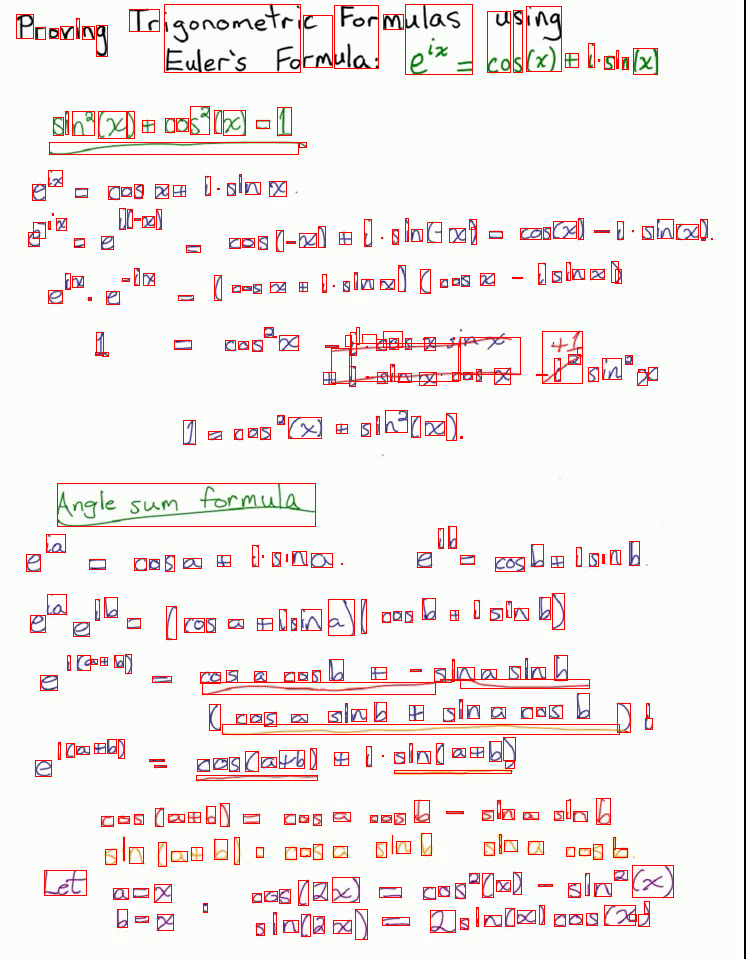 Proving Trigonometric Formulas using
Euler's Formula: e^{ix} = cos(x) + i·sin(x)
sin²(x) + cos²(x) = 1
e^{ix} = cos x + i·sin x.
e^{-ix} = e^{i(-x)} = cos(-x) + i·sin(-x) = cos(x) - i·sin(x).
e^{ix} · e^{-ix} = (cos x + i·sin x)(cos x - i sin x)
1 = cos² x - i·cos x sin x
+ i·sin x·cos x - i² +1 sin² x
1 = cos²(x) + sin²(x).
Angle sum formula
e^{ia} = cos a + i·sin a. e^{ib} = cos b + i sin b.
e^{ia} e^{ib} = (cos a + i sin a)(cos b + i sin b)
e^{i(a+b)} = cos a cos b + - sin a sin b
(cos a sin b + sin a cos b) i
e^{i(a+b)} = cos(a+b) + i·sin(a+b)
cos(a+b) = cos a cos b - sin a sin b
sin(a+b) = cos a sin b sin a cos b.
Let a=x cos(2x) = cos²(x) - sin²(x)
b=x sin(2x) = 2 sin(x) cos(x)